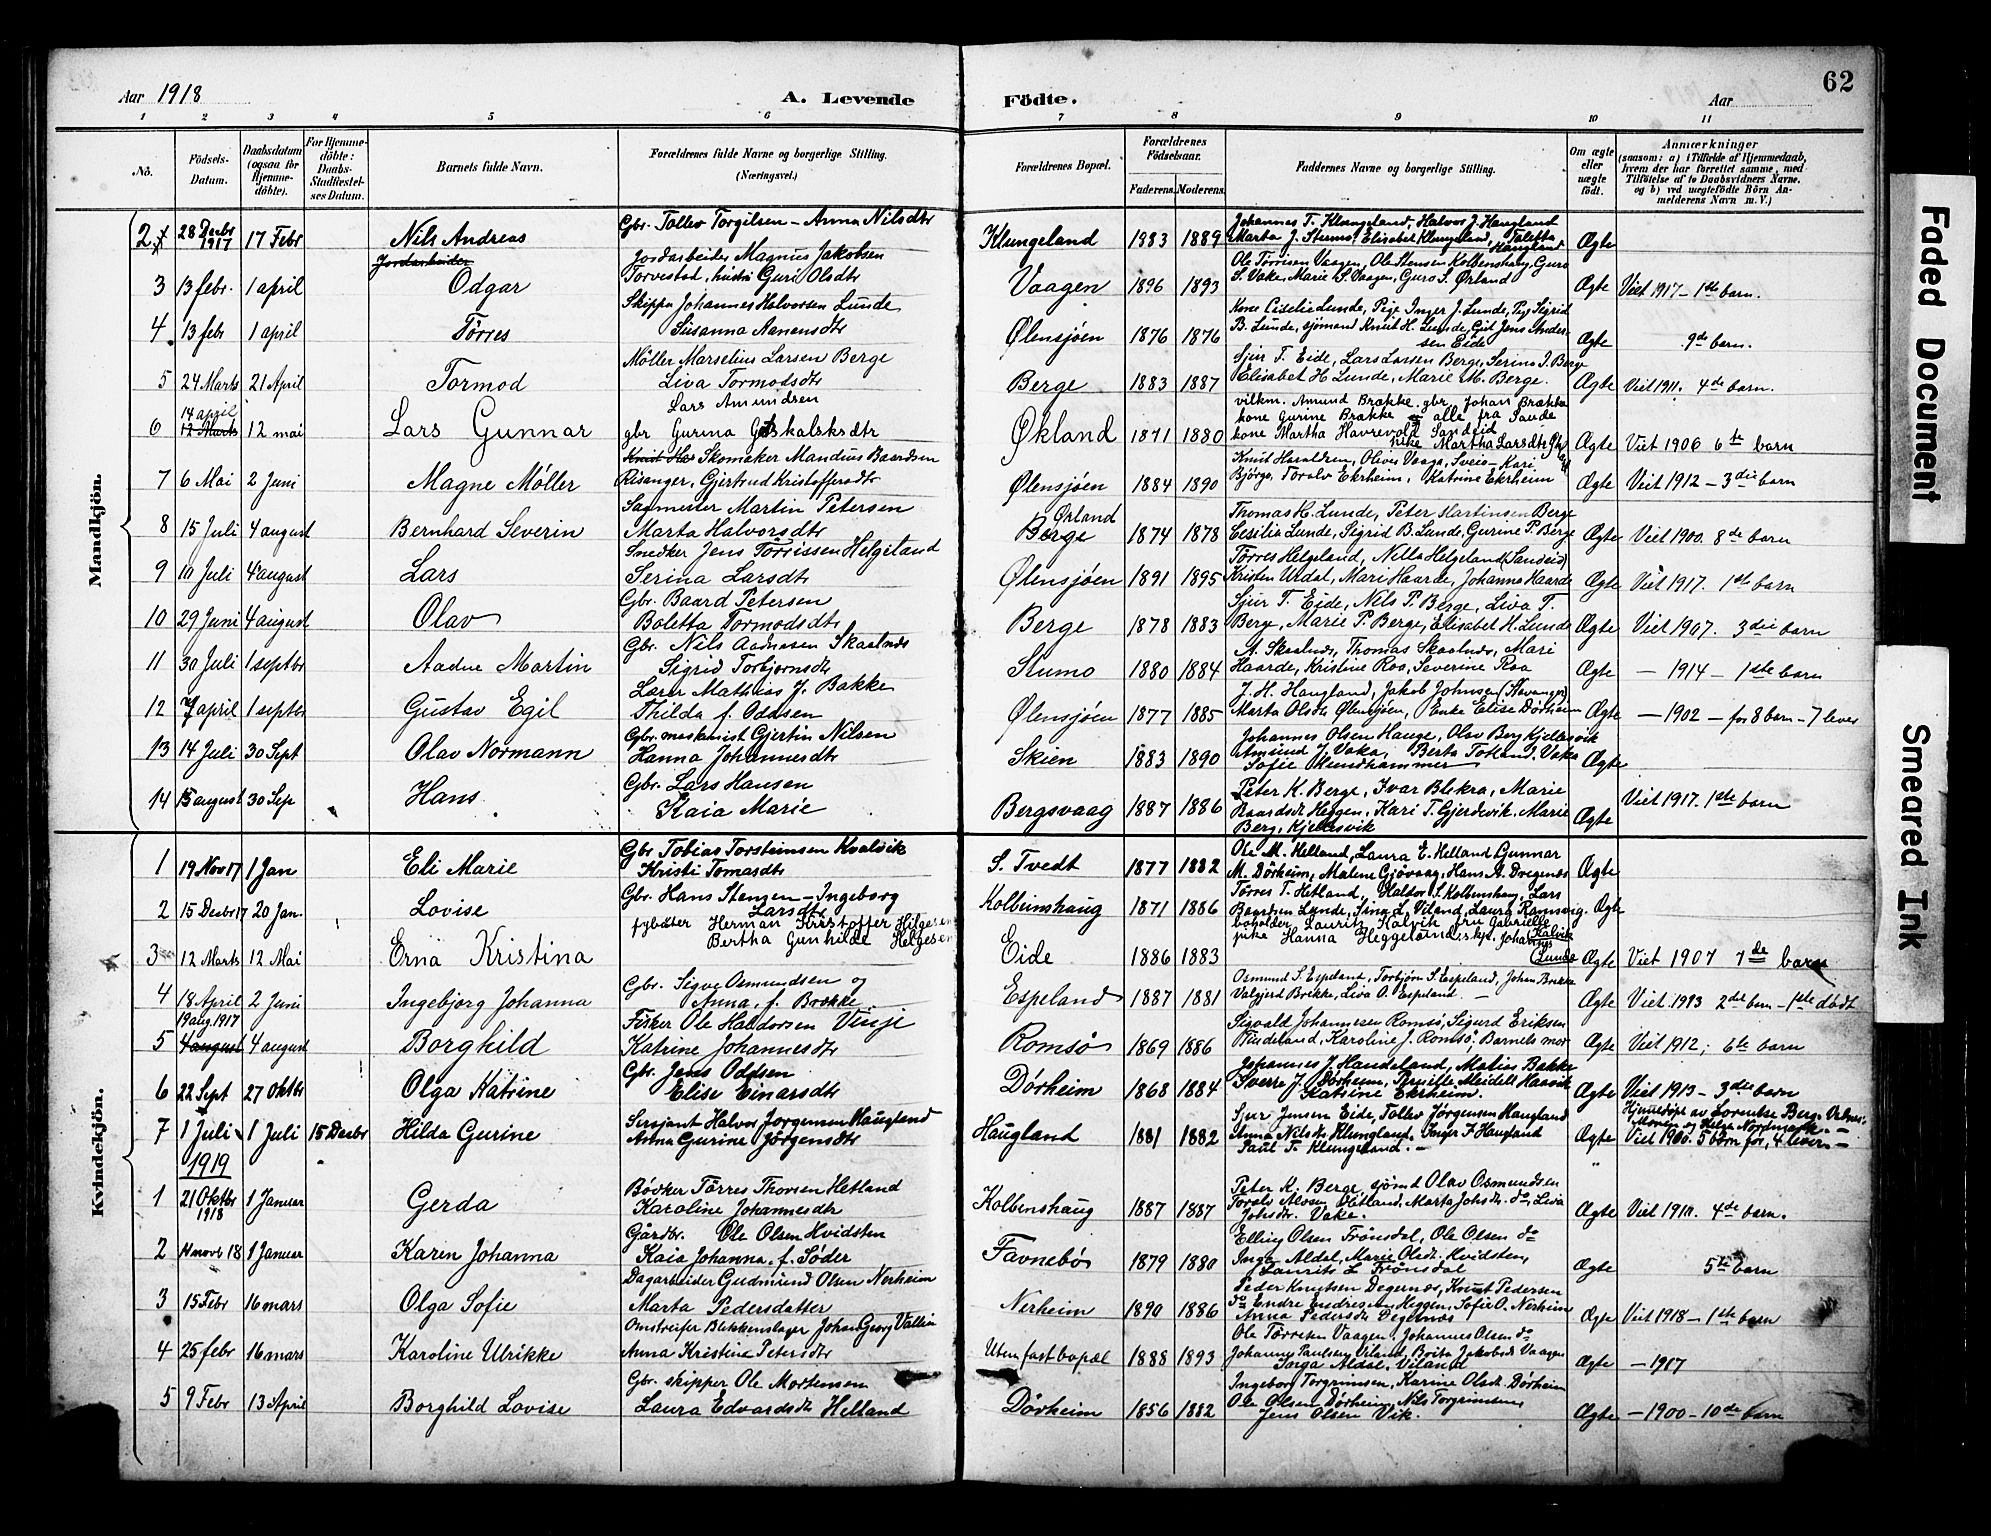 Aar 1918
A. Levende
Födte.
Aar
62
1 2 3 4 5 6 7 8 9 10 11
No.
Födsels-Datum.
Daabsdatum (ogsaa för Hjemmedöbte).
For Hjemmedöbte: Daabs-Stadfæstelses Datum.
Barnets fulde Navn.
Forældrenes fulde Navne og borgerlige Stilling. (Næringsvei.)
Forældrenes Bopæl.
Forældrenes Födselsaar.
Faderens. Moderens.
Faddernes Navne og borgerlige Stilling.
Om ægte eller uægte födt.
Anmærkninger
(saasom: a) i Tilfælde af Hjemmedaab, hvem der har forrettet samme, med Tilföielse af to Daabsvidners Navne, og b) ved uægtefödte Börn Anmelderens Navn m. V.)
Mandkjön.
2 28 Decbr 1917 17 Febr Nils Andreas Gbr. Tollev Torgilsen - Anna Nilsdtr Klungeland 1883 1889 Johannes T. Klungeland, Halvor J. Haugland Marta J. Stumo, Elisabet Klungeland, Taletta Haugland Ægte
Jordarbeider
3 13 febr. 1 april Odgar Jordarbeider Magnus Jakobsen Torvestad, hustru Guri Olsdtr Vaagen 1896 1893 Ole Törrisen Vaagen, Ole Stensen Kolbenshaug, Guro S. Vake, Marie S. Vaagen, Guro S. Ørland Ægte Viet 1917 - 1ste barn.
4 13 febr 1 april Törres Skippr Johannes Halvorsen Lunde Susanna Aanensdtr Ølensjøen 1876 1876 Kone Ciselie Lunde, Pige Inger J. Lunde, Pig Sigrid B. Lunde, sjömand Knut H. Lunde, Gut Jens Andersen Eide Ægte 9de barn.
5 24 Marts 21 April Tormod Möller Marselius Larsen Berge Liva Tormodsdtr Berge 1883 1887 Sjur T. Eide, Lars Larsen Berge, Serina I. Berge Elisabet H. Lunde, Marie M. Berge. Ægte Viet 1911. 4de barn.
6 14 april 12 Marts 12 mai Lars Gunnar Lars Amundsen gbr Gurina Gotskalksdtr Økland 1871 1880 vilkm. Amund Brække. gbr Johan Brække kone Gurine Brække - alle fra Sande kone Martha Havrevold Sandeid pike Martha Larsdtr Ægte Viet 1906 6te barn
7 6 Mai 2 Juni Magne Möller Skomaker Mandius Baardsen Risanger, Gjertrud Kristoffersdtr Ølensjöen 1884 1890 Knut Haraldsen, Olives Vaaga, Sveio - Kari Björge, Toralv Ekrheim, Katrine Ekrheim Ægte Viet 1912 - 3die barn
8 15 Juli 4 august Bernhard Severin Sagmester Martin Petersen Marta Halvorsdtr Ørland Berge 1874 1878 Thomas H. Lunde, Peter Martinsen Berge Cesilia Lunde, Sigrid B. Lunde, Gurine P. Berge Ægte Viet 1900. 8de barn
9 10 Juli 4 august Lars Snedker Jens Törrissen Helgeland Serina Larsdtr Ølensjöen 1891 1895 Törres Helgeland, Nilla Helgeland (Sandeid) Kristen Urdal, Mari Haarde, Johanna Haarde Ægte Viet 1917. 1ste barn
10 29 Juni 4 august Olav Gbr. Baard Petersen Boletta Tormodsdtr Berge 1878 1883 Sjur T. Eide, Nils P. Berge, Liva T. Berge, Marie P. Berge, Elisabet H. Lunde Ægte Viet 1907. 3die barn
11 30 Juli 1 septbr Aadne Martin Gbr. Nils Aadnesen Skaalnes Sigrid Torbjornsdtr Stumo 1880 1884 A. Skaalnes, Thomas Skaalnes, Mari Haarde, Kristine Roa, Severine Roa Ægte - 1914 - 1ste barn
12 7 april 1 septbr Gustav Egil Lærer Mathias J. Bakke Thilda f. Oddsen Ølensjöen 1877 1885 J. H. Haugland, Jakob Johnsen (Stavanger) Marta Olsdtr Ølensjöen, Enke Elise Dörheim Ægte - 1902 - för 8 barn - 7 lever
13 14 Juli 30 Sept Olav Normann Gbr. maskinist Gjertin Nilsen Hanna Johannesdtr Skien 1883 1890 Johannes Olsen Hauge, Olav Berg Kjellesvik Amund J. Vaka, Berta Totland, Vaka Sofie Mundhammer Ægte
14 15 august 30 Sep Hans Gbr. Lars Hansen Kaia Marie Bergsvaag 1887 1886 Peter K. Berge, Ivar Blekra, Marie Baardsdtr Heggen, Kari T. Gjerdevik, Marie Berg, Kjellesvik Ægte Viet 1917. 1ste barn
Kvindekjön.
1 19 Nov 17 1 Jan Eli Marie Gbr Tobias Torsteinsen Kvalvik Kristi Tomasdtr S. Tvedt 1877 1882 Ole M. Helland, Laura E. Helland Gunnar M. Dörheim, Malene Gjövaag, Hans A. Dregenes Ægte
2 15 Decbr 17 20 Jan. Lovise Gbr. Hans Stengen - Ingeborg Larsdtr Kolbenshaug 1871 1886 Törres T. Hetland, Haldor S. Kolbenshaug, Lars Baardsen Lunde, Sina L. Viland, Laura Ramsvag Ægte
3 12 Marts 12 Mai Erna Kristina fyrböter Herman Kristoffer Helgesen Bertha Gunhilde Helgesen Eide 1886 1883 beholder Laurits Kalvik fru Gabrielle Kalvik pike Hanna Heggeland, skp. Johannes Lunde Ægte Viet 1907 7de barn
4 18 April 2 Juni Ingebjorg Johanna Gbr. Sigve Osmundsen og Anna, f. Brække. Espeland 1887 1881 Osmund S. Espeland, Torbjörn S. Espeland, Johan Brække Valgjerd Brække, Liva O. Espeland. - Ægte Viet 1913 2det barn - 1ste dödt
5 19 aug. 1917 4 august 4 august Borghild Fisker Ole Haldorsen Vinje Katrine Johannesdtr Romsö 1869 1886 Sigvald Johannesen Romsö, Sigurd Eriksen Tindeland, Karoline J. Romsö, Barnets mor Ægte Viet 1912; 6te barn
6 22 Sept 27 Oktbr Olga Katrine Gbr. Jens Oddsen Elise Einarsdtr Dörheim 1868 1884 Johannes J. Handeland, Matias Bakke Sverre J. Dörheim, Pernille Meidell Haavik Katrine Ekrheim. Ægte Viet 1913 - 3die barn
7 1 Juli 1 Juli 15 Decbr Hilda Gurine Sersjant Halvor Jorgensen Haugland Anna Gurine Jörgensdtr Haugland 1881 1882 Sjur Jensen Eide, Tollev Jörgensen Haugland Anna Nilsdtr Klungland, Inger J. Haugland Paul T. Klungeland. - Ægte Hjemmedöpt av Lorentse Berg. Vidner: Moren og Helge Nordmark. - Viet 1900. 5 born för, 4 lever -
1919
1 21 Oktbr 1918 1 Januar Gerda Bödker Törres Thorsen Hetland Karoline Johannesdtr Kolbenshaug 1887 1887 Peter K. Berge, sjömd Olav Osmundsen Toralv Alvsen Hetland, Marta Johsdtr do. Liva Johsdtr. Vake. Ægte Viet 1910. 4de barn.
2 14 novb 18 1 Januar Karen Johanna Gårdbr. Ole Olsen Hvidsten Kaia Johanna, f. Söder Favnebö 1879 1880 Elling Olsen Frönsdal, Ole Olsen do Inga Aldal, Marie Olsdtr. Hvidsten, Laurits L. Frönsdal Ægte 5te barn
3 15 Febr 16 mars Olga Sofie Dagarbeider Gudmund Olsen Nerheim Marta Pedersdatter Nerheim 1890 1886 Peder Knutsen Degernes, Knut Pedersen do Endre Endresen Heggen, Sofie O. Nerheim Anna Pedersdtr Degernes Ægte Viet 1918 - 1ste barn
4 25 febr 16 mars Karoline Ulrikke Omstreifer Blekkenslager Johan Georg Vallin Anna Kristine Petersdtr Uten fast bopæl 1888 1893 Ole Törresen Vaagen, Johannes Olsen do Johannes Paulsen Viland, Brita Jakobsdtr Vaagen Inga Aldal, Viland Ægte - 1917
5 9 Febr 13 April Borghild Lovise Gbr. skipper Ole Mortensen Laura Edvardsdtr Helland Dörheim 1856 1882 Ingeborg Torgrimsen, Karine Olsdtr Dörheim Ole Olsen Dörheim, Nils Torgrimsen, Jens Olsen Vik. Ægte - 1900 - 10de barn
Faded Document
Smeared Ink